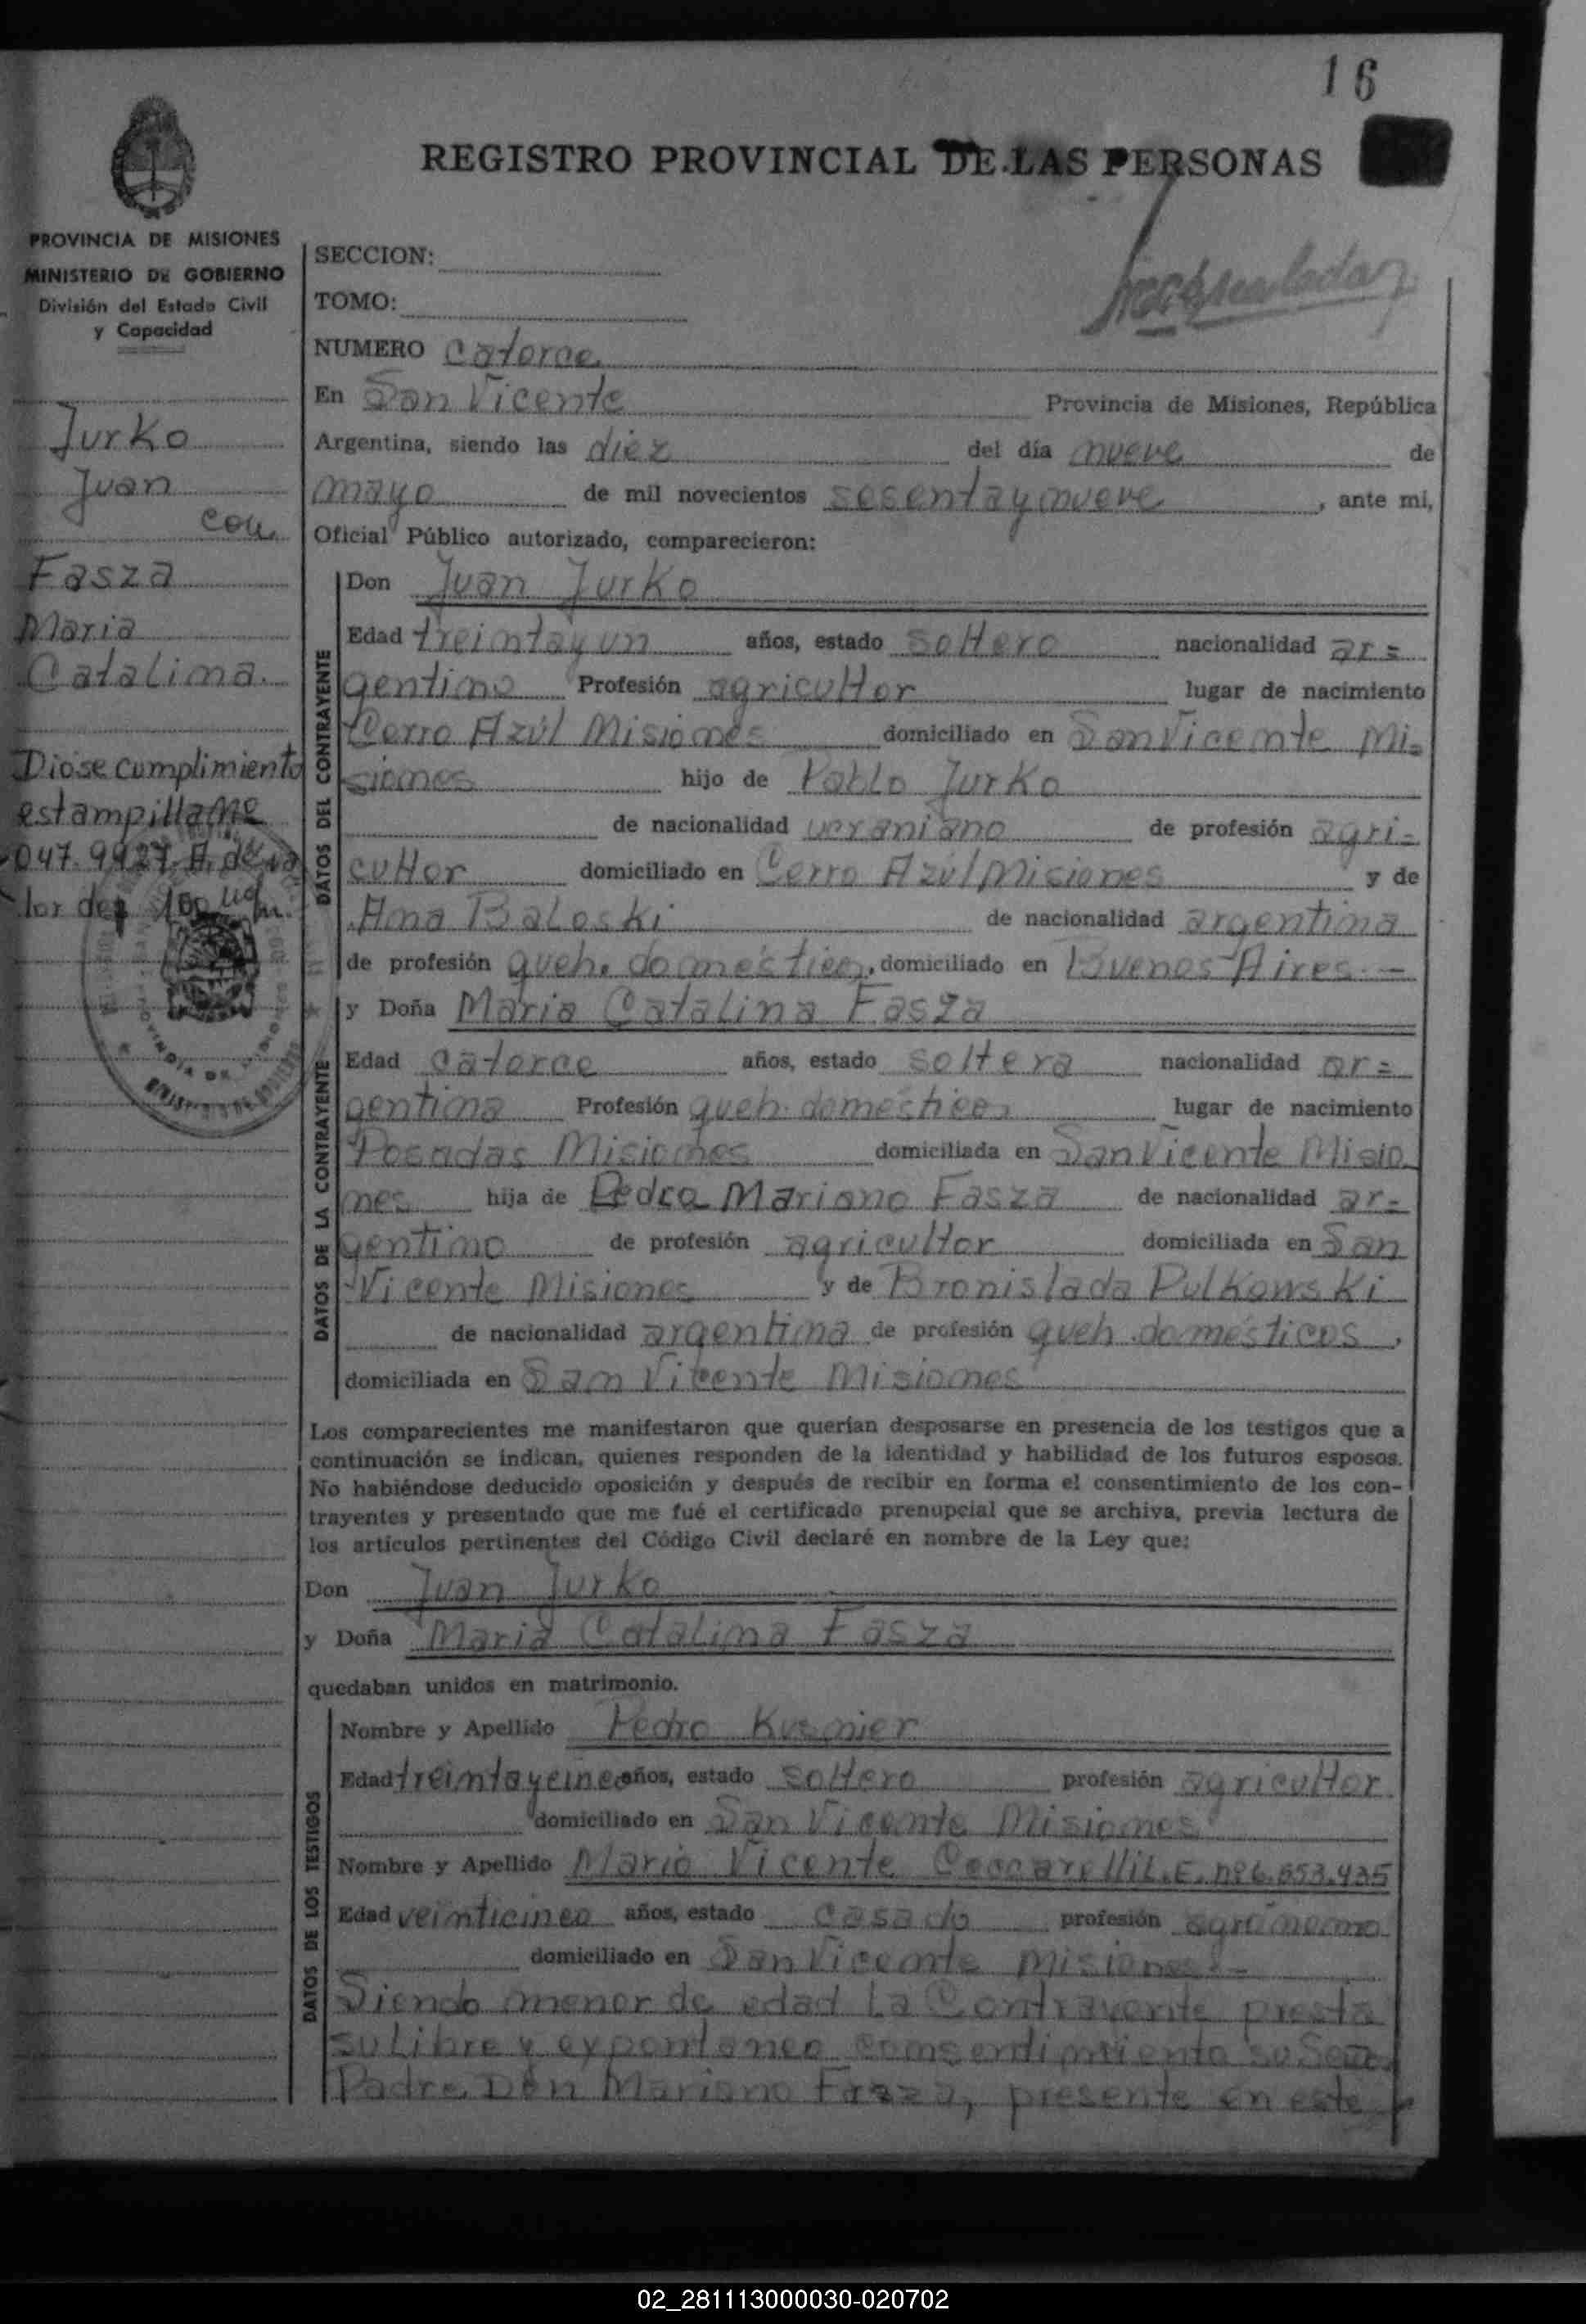 16
REGISTRO PROVINCIAL DE LAS PERSONAS
PROVINCIA DE MISIONES
MINISTERIO DE GOBIERNO
División del Estado Civil
y Capacidad
Jurko
Juan
con
Fasza
Maria
Catalina.
Diose cumplimiento
estampilla Nº
047.9927 A. de va
lor de $ 100
SECCION:
TOMO:
NUMERO catorce
En San Vicente Provincia de Misiones, República
Argentina, siendo las diez del día nueve de
mayo de mil novecientos sesentaynueve, ante mi,
Oficial Público autorizado, comparecieron:
DATOS DEL CONTRAYENTE
Don Juan Jurko
Edad treintayun años, estado soltero nacionalidad ar=
gentino Profesión agricultor lugar de nacimiento
Cerro Azúl Misiones domiciliado en San Vicente Mi=
siones hijo de Pablo Jurko
de nacionalidad ucraniano de profesión agri=
cultor domiciliado en Cerro Azúl Misiones y de
Ana Baloski de nacionalidad argentina
de profesión queh. domésticos, domiciliado en Buenos Aires.-
DATOS DE LA CONTRAYENTE
y Doña Maria Catalina Fasza
Edad catorce años, estado soltera nacionalidad ar=
gentina Profesión queh. domésticos lugar de nacimiento
Posadas Misiones domiciliada en San Vicente Misio
nes hija de Pedro Mariano Fasza de nacionalidad ar=
gentino de profesión agricultor domiciliada en San
Vicente Misiones y de Bronislada Pulkowski
de nacionalidad argentina de profesión queh. domésticos,
domiciliada en San Vicente Misiones
Los comparecientes me manifestaron que querían desposarse en presencia de los testigos que a
continuación se indican, quienes responden de la identidad y habilidad de los futuros esposos.
No habiéndose deducido oposición y después de recibir en forma el consentimiento de los con-
trayentes y presentado que me fué el certificado prenupcial que se archiva, previa lectura de
los artículos pertinentes del Código Civil declaré en nombre de la Ley que:
Don Juan Jurko
y Doña Maria Catalina Fasza
quedaban unidos en matrimonio.
DATOS DE LOS TESTIGOS
Nombre y Apellido Pedro Kusmier
Edad treintaycinco años, estado soltero profesión agricultor
domiciliado en San Vicente Misiones
Nombre y Apellido Mario Vicente Ceccarelli L.E. nº 6.553.435
Edad veinticinco años, estado casado profesión agrónomo
domiciliado en San Vicente Misiones.-
Siendo menor de edad la Contrayente presta
su libre y expontaneo consentimiento su Señor
Padre Don Mariano Fasza, presente en este
02_281113000030-020702